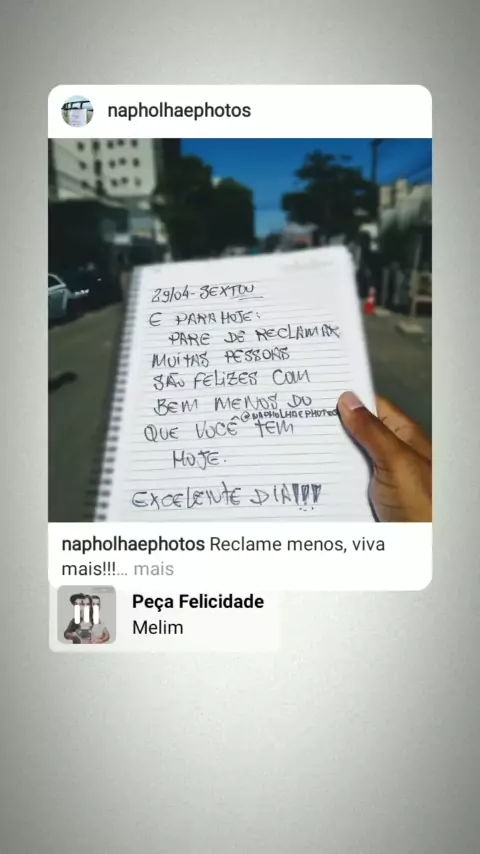 napholhaephotos
29/04 - SEXTOU
E PARA HOJE:
PARE DE RECLAMAR
MUITAS PESSOAS
SÃO FELIZES COM
BEM MENOS DO
@NAPHOLHAEPHOTOS
QUE VOCÊ TEM
HOJE.
EXCELENTE DIA!!!
napholhaephotos Reclame menos, viva
mais!!!... mais
Peça Felicidade
Melim